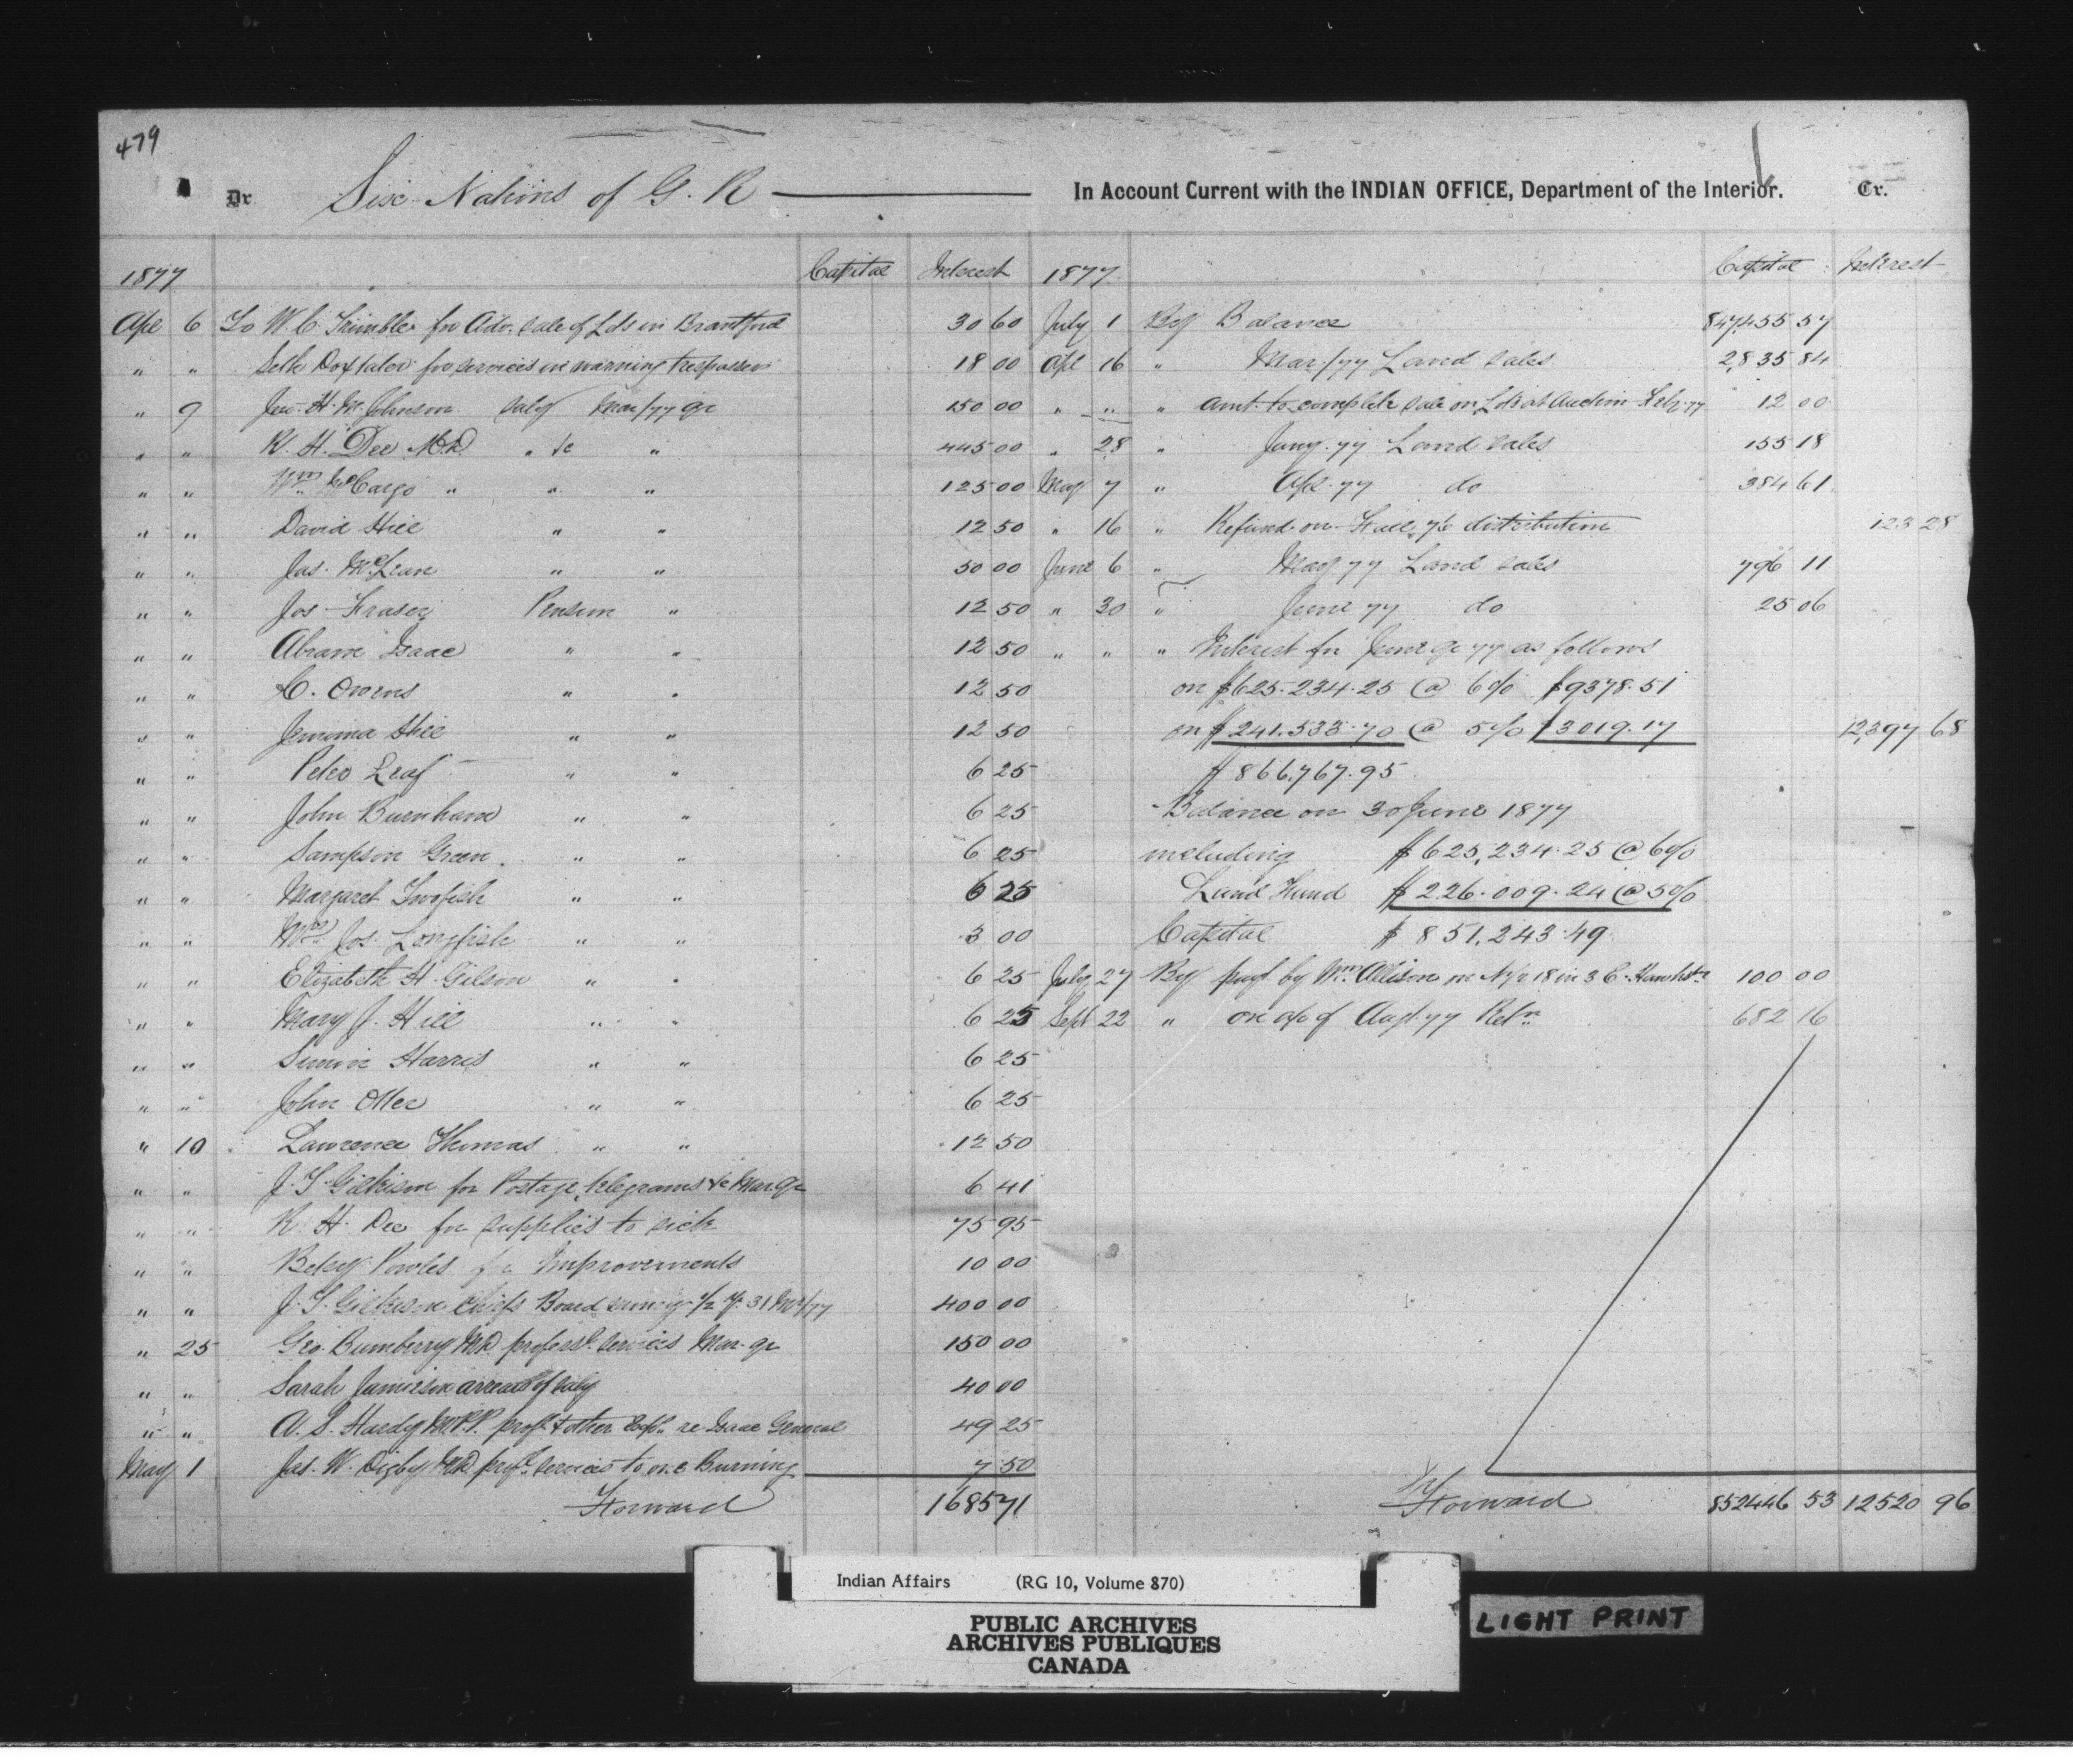 479
Dr Six Nations of G. R In Account Current with the INDIAN OFFICE, Department of the Interior. Cr.
1877 Capital Interest
Apl 6 To W. C. Trimble for Adv. sale of Lds in Brantford 30 60
" " Seth Doxtator for services in warning trespassers 18 00
" 9 Jno. H. M. Johnson Saly Mar/77 qr 150 00
" " R. H. Dee M.D. " &c " 445 00
" " Wm McCargo " " " 125 00
" " David Hill " " 12 50
" " Jas. McLean " " 50 00
" " Jos Fraser Pension " 12 50
" " Abram Isaac " " 12 50
" " C. Owens " " 12 50
" " Jemima Hill " " 12 50
" " Peter Leaf " " 6 25
" " John Burnham " " 6 25
" " Sampson Green " " 6 25
" " Margaret Twofish " " 6 25
" " Mrs Jos. Longfish " " 3 00
" " Elizabeth H. Gilson " " 6 25
" " Mary J. Hill " " 6 25
" " Harris " " 6 25
" " John Otter " " 6 25
" 10 Lawrence Thomas " " 12 50
" " J. T. Gilkison for Postage, telegrams &c Mar. qr 6 41
" " R. H. Dee for supplies to sick 75 95
" " Powles for Improvements 10 00
" " J. T. Gilkison Chiefs Board 1/2 y. 31 Mar/77 400 00
" 25 Geo. Bumberry MD profess. services Mar. qr 150 00
" " Sarah Jamieson arrears of saly 40 00
" " A. S. Hardy M.P.P. prof & other Exp. re Isaac General 49 25
May 1 Jas. W. Digby MD prof. services to one Burning 7 50
Forward 1685 71
1877 Capital Interest
July 1 By Balance 847,455 57
Apl 16 " Mar/77 Land Sales 2,835 84
" " " Amt. to complete sale on Lots at Auction Feby. 77 12 00
" 28 " Jany. 77 Land Sales 155 18
May 7 " Apl. 77 do 384 61
" 16 " Refund on Fall 76 distribution 123 28
June 6 " May 77 Land Sales 796 11
" 30 " June 77 do 25 06
" " " Interest for June qr 77 as follows
on $625.234.25 @ 6% $9378.51
on $241.533.70 @ 5% $3019.17 12,397 68
$866,767.95
Balance on 30 June 1877
including $625,234.25 @ 6%
Land Fund $226.009.24 @ 5%
Capital $851,243.49
July 27 By payt by Wm Allison on N 1/2 18 in 3 C. 100 00
Sept 22 " on a/c of Augt. 77 Retn 682 16
Forward 852446 53 12520 96
Indian Affairs (RG 10, Volume 870)
PUBLIC ARCHIVES
ARCHIVES PUBLIQUES
CANADA
LIGHT PRINT